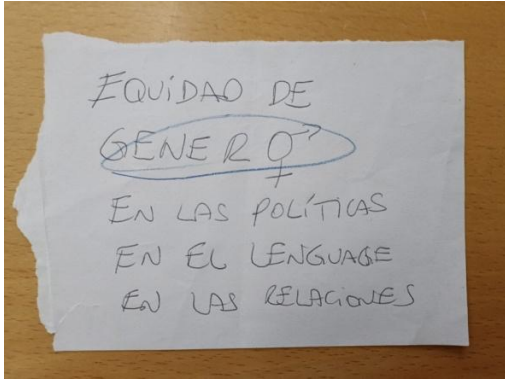 EQUIDAD DE
GENERO
EN LAS POLÍTICAS
EN EL LENGUAGE
EN LAS RELACIONES